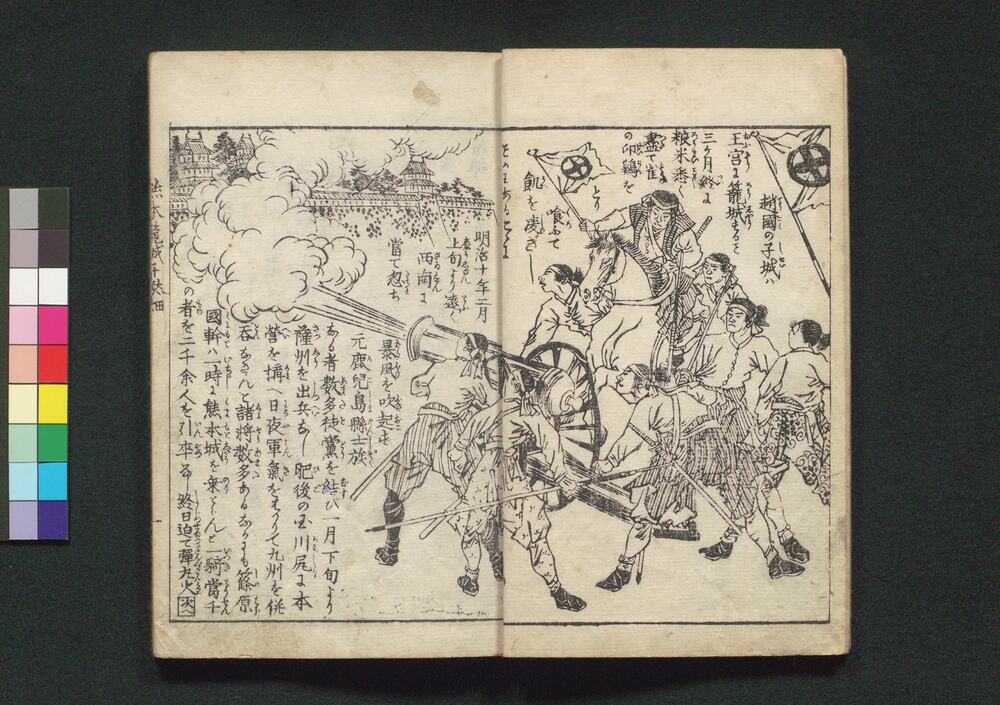 趙國の子城ハ
王宮に籠城する
三ヶ月終に
粮米悉く
盡て雀
の卵鶏を
とり
喰ふて
飢を凌ぎし
明治十年二月
上旬より遠く
西南に
當て忽ち
暴風を吹起せ
元鹿児島縣士族
ある者數多徒黨を結び一月下旬より
薩州を出兵なし肥後の国川尻に本
營を搆へ日夜軍氣をはりて九州を併
呑なさんと諸將數多あるなかにも篠原
國幹ハ一時に熊本城を乗とらんと一騎當千
の者を二千余人を引卒なし終日迫て彈丸火
次へ